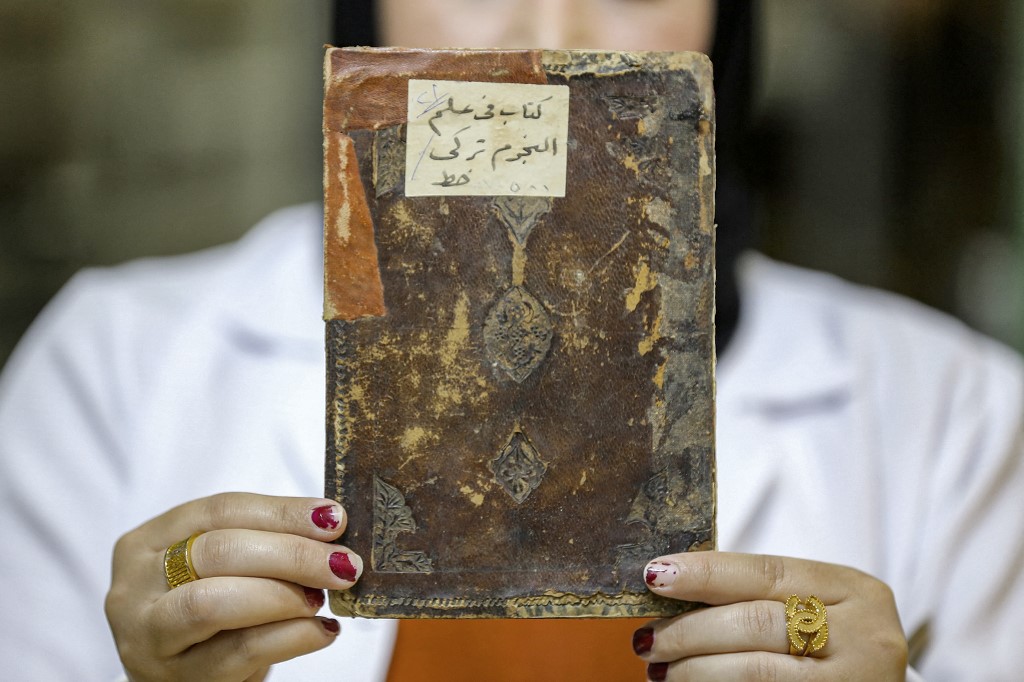 كتاب في علم
النجوم تركي
خط ٥٠٠